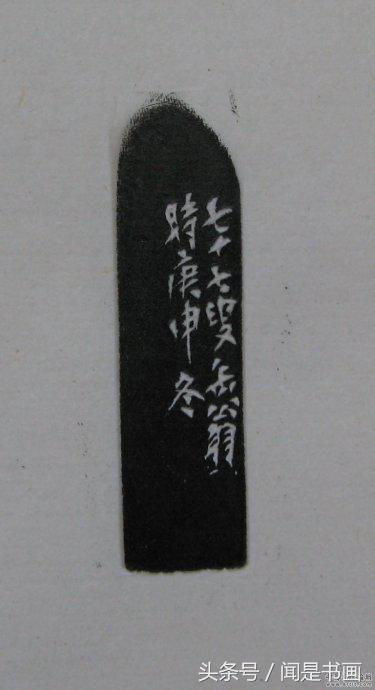 七十七叟缶翁
時庚申冬
头条号 / 闻是书画